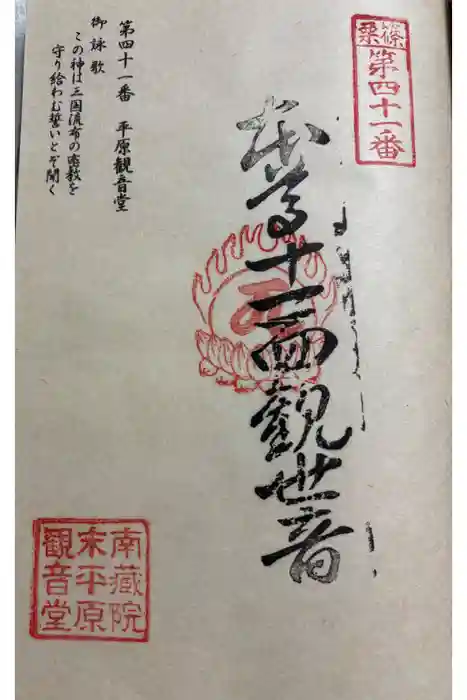 篠栗
第四十一番
本尊十一面観世音
第四十一番 平原観音堂
御詠歌
この神は三国流布の密教を
守り給わむ誓いとぞ聞く
南蔵院
末平原
観音堂